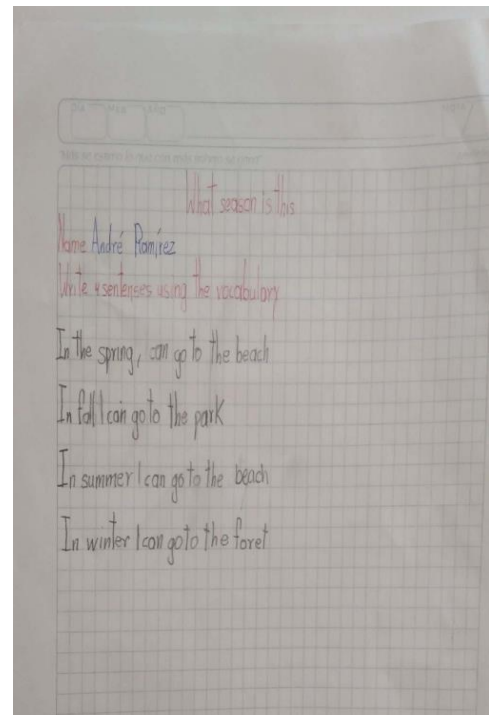 Día Mes Año
What season is this
Name André Ramírez
Write 4 sentenses using the vocabulary
In the spring, can go to the beach
In fall I can go to the park
In summer I can go to the beach
In winter I can go to the foret